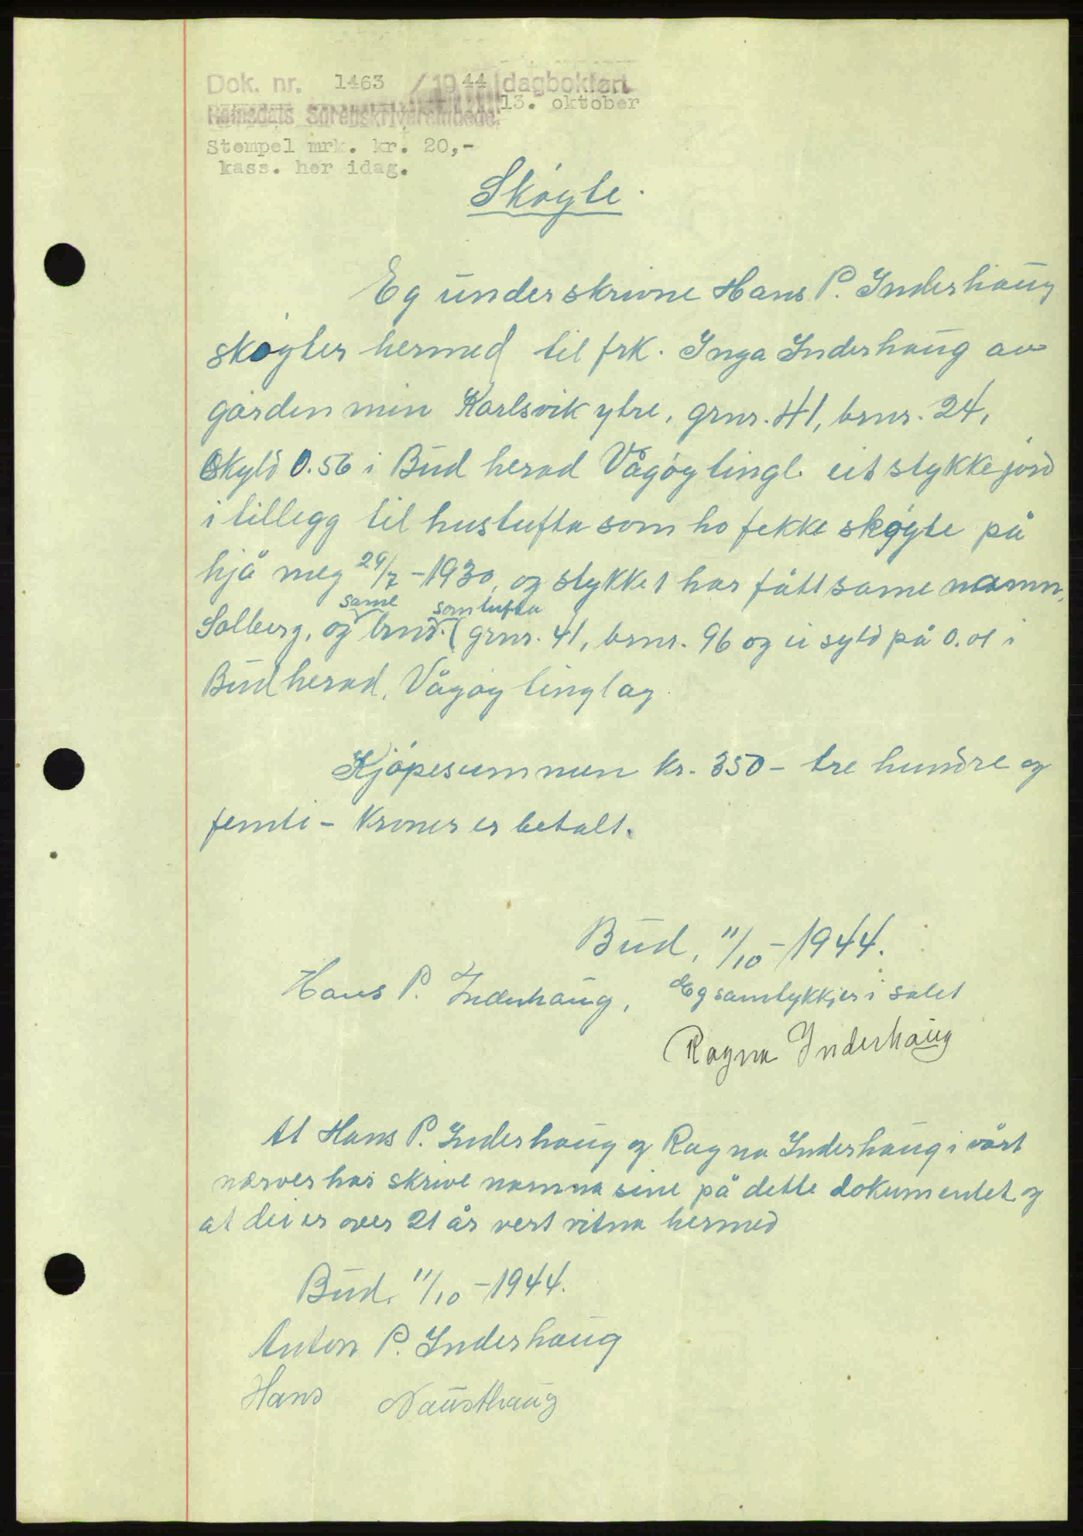 Dok. nr. 1463 / 1944 dagbokført
Romsdals Sorenskriverembede. 13. oktober
Stempel mrk. kr. 20,-
kass. her idag.
Skøyte.
Eg underskrivne Hans P. Inderhaug
skøyter hermed til frk. Inga Inderhaug av
garden min Karlsvik ytre, grnr. 41, brnr. 24,
skyld 0.56 i Bud herad Vågøy tingl. eit stykke jord
i tillegg til hustufta som ho fekke skøyte på
hjå meg 29/7 - 1930, og stykket har fått same namn,
same som tufta
Solberg, og brnr. ( grnr. 41, brnr. 96 og ei syld på 0.01 i
Bud herad, Vågøy tinglag.
Kjøpesummen kr. 350 - tre hundre og
femti - kroner er betalt.
Bud, 11/10 - 1944.
Hans P. Inderhaug, Eg samtykkjer i salet
Ragna Inderhaug
At Hans P. Inderhaug og Ragna Inderhaug i vårt
nærver har skrive namna sine på dette dokumentet og
at dei er over 21 år vert vitna hermed
Bud, 11/10 - 1944.
Anton P. Inderhaug
Hans Nausthaug